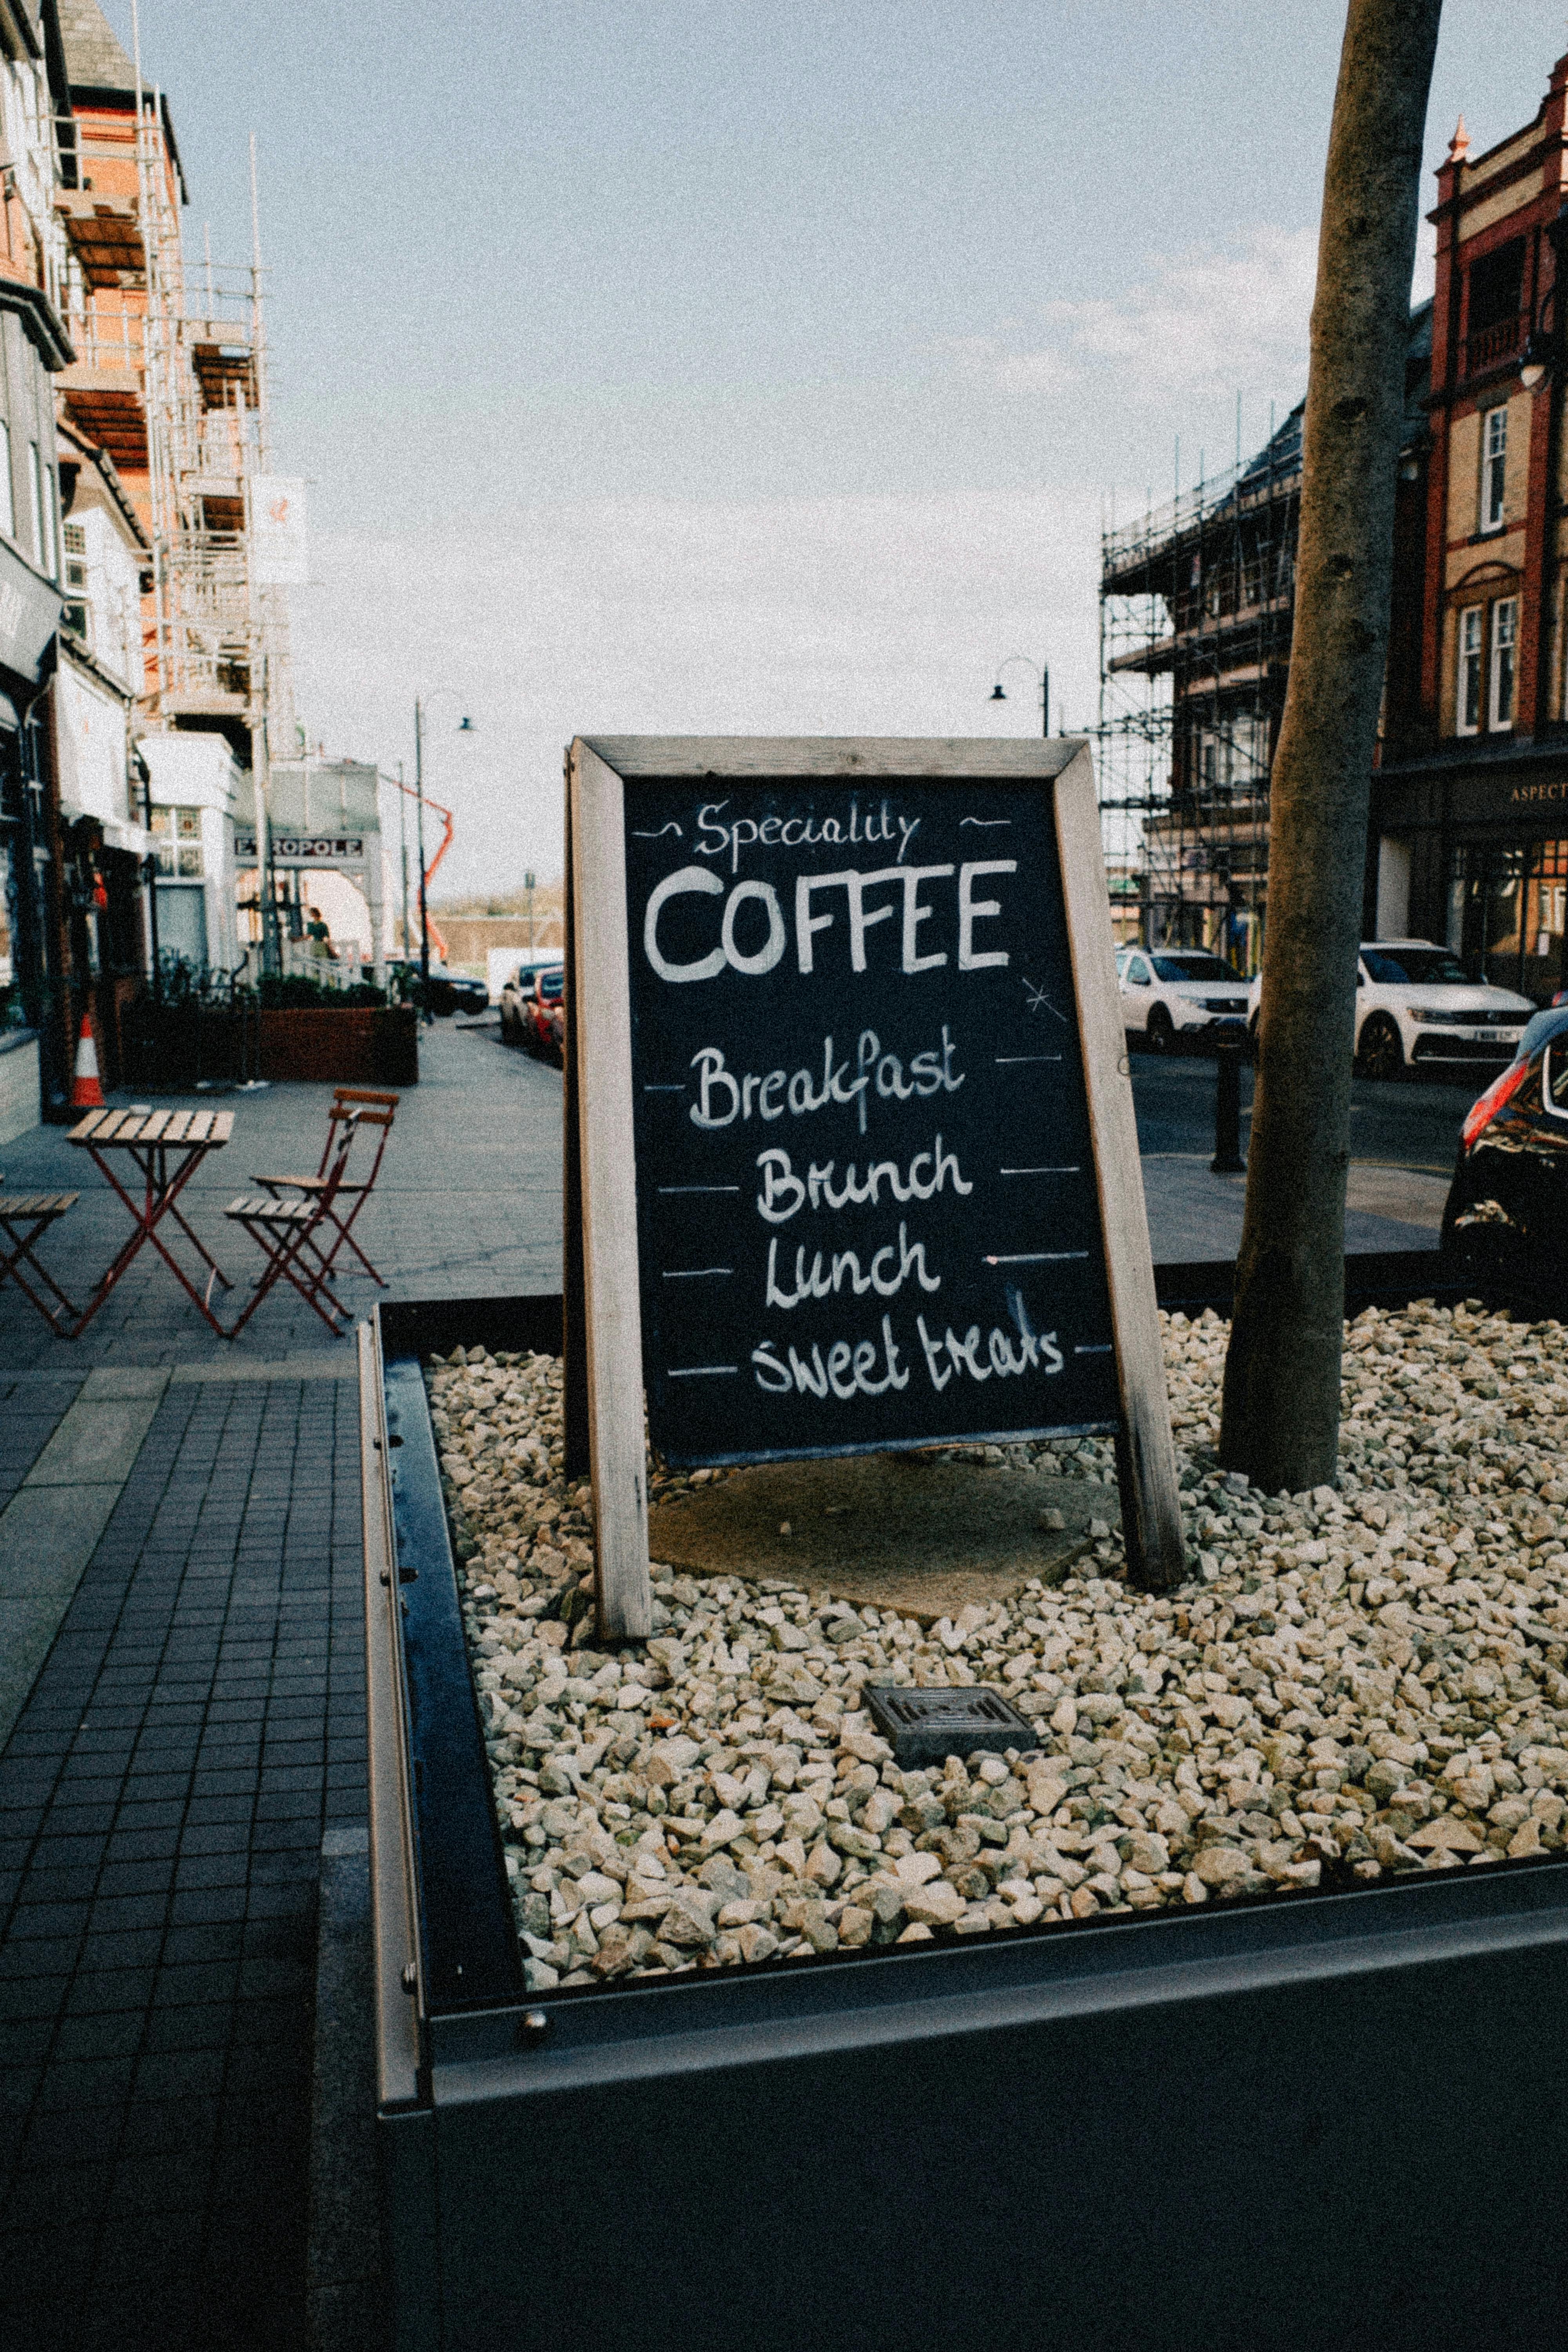 Speciality
COFFEE
Breakfast
Brunch
Lunch
Sweet treats
ETROPOLE
ASPECT